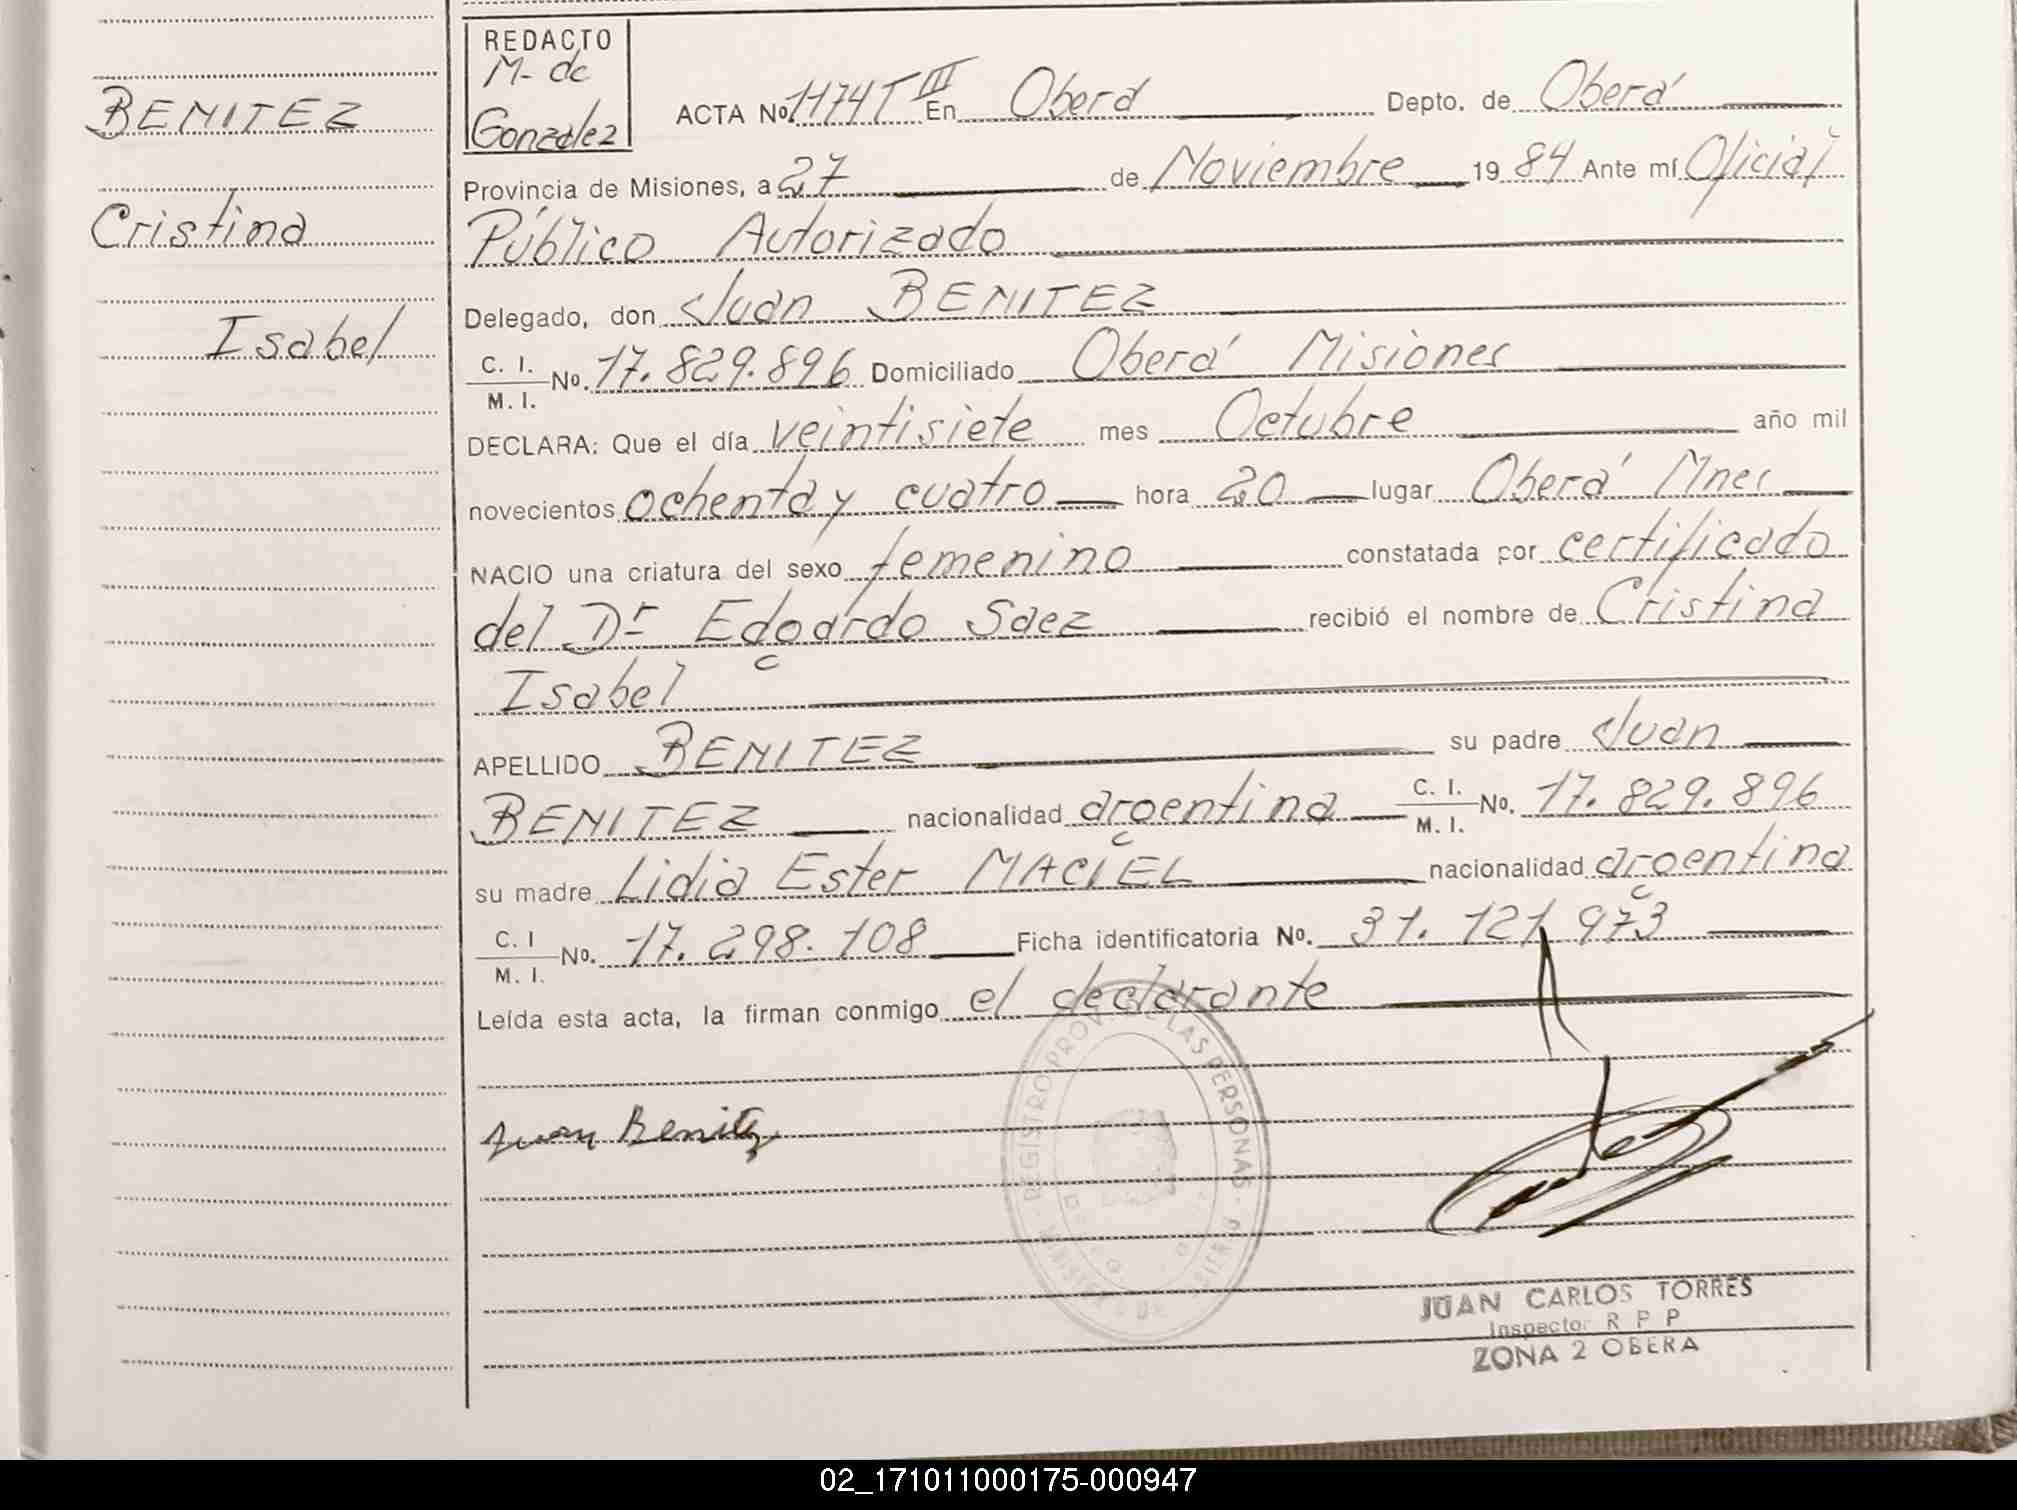 BENITEZ
Cristina
Isabel
REDACTO
M- de
Gonzalez
ACTA No. 1174 T III En Oberá Depto. de Oberá
Provincia de Misiones, a 27 de Noviembre 19 84 Ante mí Oficial
Público Autorizado
Delegado, don Juan BENITEZ
C. I.
M. I. No. 17.829.896 Domiciliado Oberá Misiones
DECLARA: Que el día veintisiete mes Octubre año mil
novecientos ochenta y cuatro hora 20 lugar Oberá Mnes
NACIO una criatura del sexo femenino constatada por certificado
del Dr Edgardo Saez recibió el nombre de Cristina
Isabel
APELLIDO BENITEZ su padre Juan
BENITEZ nacionalidad argentina C. I. M. I. No. 17.829.896
su madre Lidia Ester MACIEL nacionalidad argentina
C. I M. I. No. 17.298.108 Ficha identificatoria No. 31.121.973
Leída esta acta, la firman conmigo el declarante
Juan Benitez
REGISTRO PROV. DE LAS PERSONAS
JUAN CARLOS TORRES
Inspector R P P
ZONA 2 OBERA
02_171011000175-000947